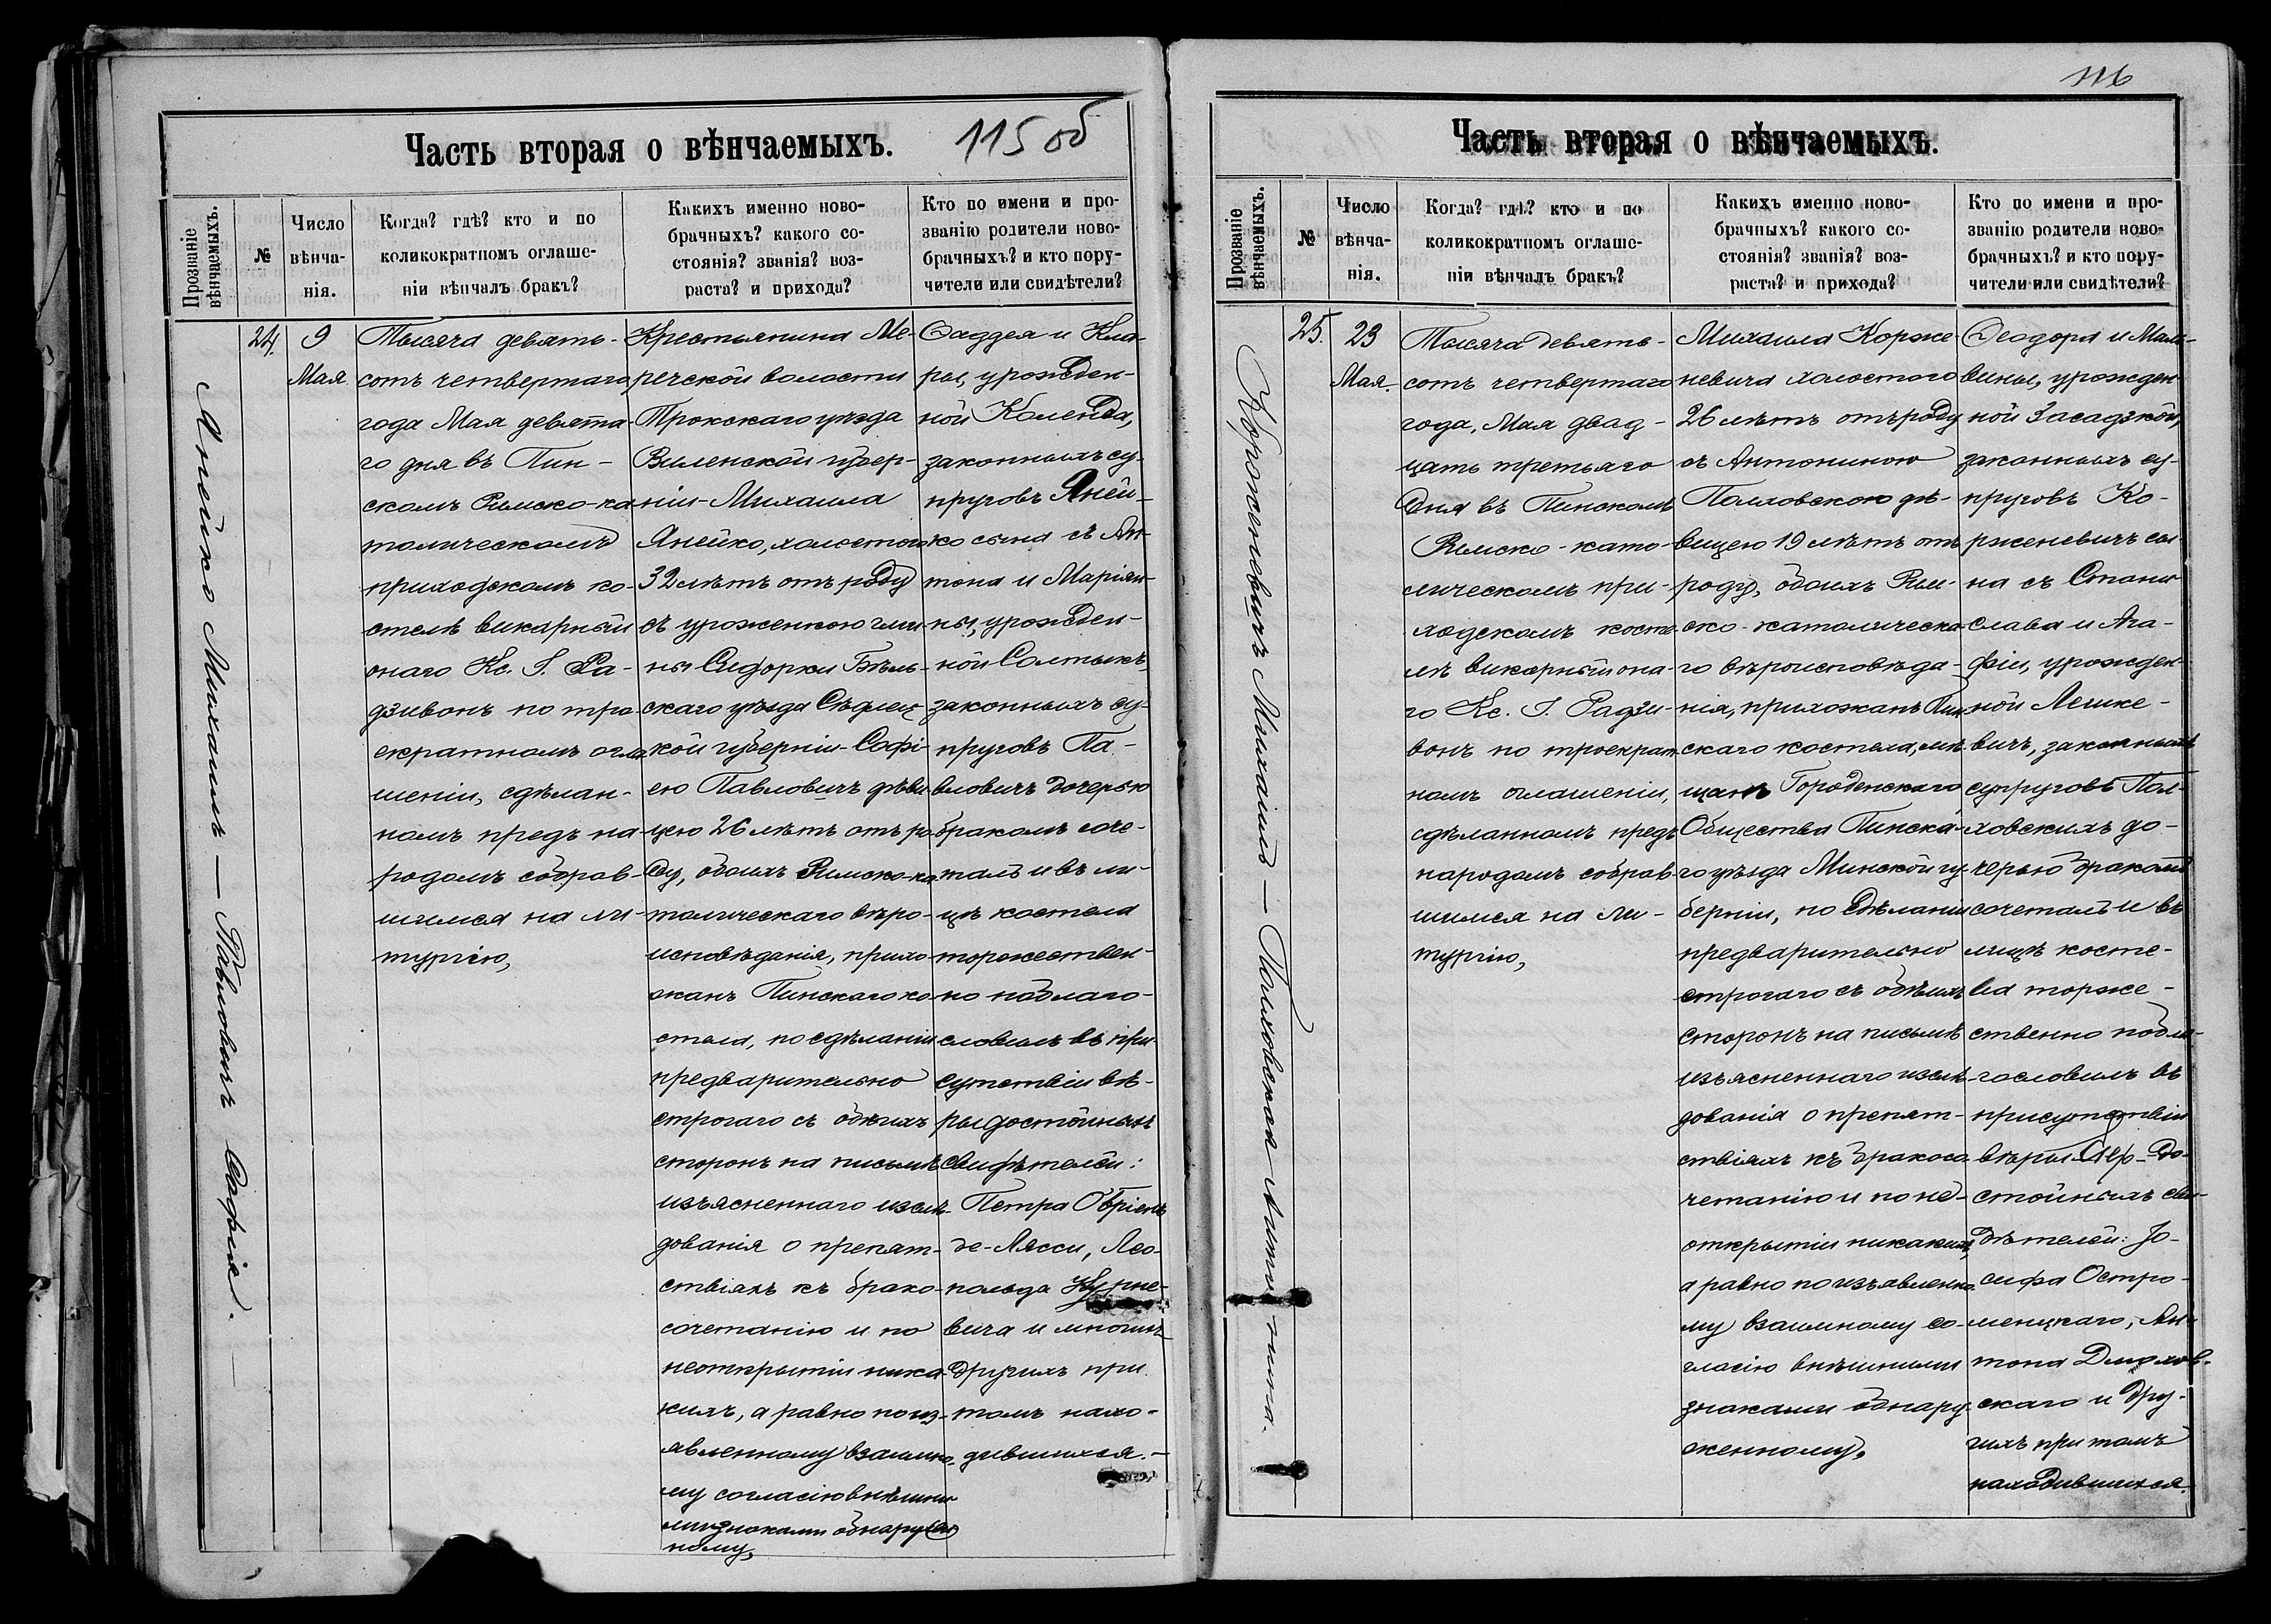 115 об
Часть вторая о вѣнчаемыхъ.
Прозваніе
вѣнчаемыхъ.
№
Число
вѣнча-
нія.
Когда? гдѣ? кто и по
коликократномъ оглаше-
ніи вѣнчалъ бракъ?
Какихъ именно ново-
брачныхъ? какого со-
стоянія? званія? воз-
раста? и прихода?
Кто по имени и про-
званію родители ново-
брачныхъ? и кто пору-
чители или свидѣтели?
Янейко Михаилъ — Павловичъ Софія.
24.
9
Мая
Тысяча девять-
сотъ четвертаго
года Мая девята-
го дня въ Пин-
скомъ Римско-ка-
толическомъ
приходскомъ ко-
стелѣ викарный
онаго Кс. І. Ра-
дзивонъ по тро-
екратномъ огла-
шеніи, сдѣлан-
номъ предъ на-
родомъ собрав-
шимся на ли-
тургію,
Крестьянина Ме-
речской волости
Трокскаго уѣзда
Виленской губер-
ніи Михаила
Янейко, холостого
32 лѣтъ отъ роду
съ уроженкою гми-
ны Сидорки Бѣль-
скаго уѣзда Сѣдлец-
кой губерніи Софі-
ею Павловичъ дѣви-
цею 26 лѣтъ отъ ро-
ду, обоихъ Римско-ка-
толическаго вѣро-
исповѣданія, прихо-
жанъ Пинскаго ко-
стела, по сдѣланіи
предварительно
строгаго съ обѣихъ
сторонъ на письмѣ
изъясненнаго изслѣ-
дованія о препят-
ствіяхъ къ брако-
сочетанію и по
неоткрытіи ника-
кихъ, а равно по из-
явленному взаимно-
му согласію внѣшни-
ми знаками обнаружен
ному,
Фаддея и Кла-
ры, урожден-
ной Коленда,
законныхъ су-
пруговъ Яней-
ко сына съ Ан-
тона и Маріан-
ны, урожден-
ной Солтыкъ
законныхъ су-
пруговъ Па-
вловичъ дочерью
бракомъ соче-
талъ и въ ли-
цѣ костела
торжествен-
но поблаго-
словилъ въ при-
сутствіи вѣ-
ры достойныхъ
свидѣтелей:
Петра Обріенъ
де-Лясси, Лео-
польда
вича и многихъ
другихъ при
томъ нахо-
дившихся.—
116
Часть вторая о вѣнчаемыхъ.
Прозваніе
вѣнчаемыхъ.
№
Число
вѣнча-
нія.
Когда? гдѣ? кто и по
коликократномъ оглаше-
ніи вѣнчалъ бракъ?
Какихъ именно ново-
брачныхъ? какого со-
стоянія? званія? воз-
раста? и прихода?
Кто по имени и про-
званію родители ново-
брачныхъ? и кто пору-
чители или свидѣтели?
Корженевичъ Михаилъ — Полховская Антонина.
25.
23
Мая
Тысяча девять-
сотъ четвертаго
года, Мая двад-
цать третьяго
дня въ Пинскомъ
Римско-като-
лическомъ при-
ходскомъ косте-
лѣ викарный она-
го Кс. І. Радзи-
вонъ по троекрат-
номъ оглашеніи,
сдѣланномъ предъ
народомъ собрав-
шимся на ли-
тургію,
Михаила Корже-
невича холостого
26 лѣтъ отъ роду
съ Антониною
Полховскою дѣ-
вицею 19 лѣтъ отъ
роду, обоихъ Рим-
ско-католическа-
го вѣроисповѣда-
нія, прихожанъ Пин-
скаго костела, мѣ-
щанъ Городенскаго
Общества Пинска-
го уѣзда Минской гу-
берніи, по сдѣланіи
предварительно
строгаго съ обѣихъ
сторонъ на письмѣ
изъясненнаго изслѣ-
дованія о препят-
ствіяхъ къ бракосо-
четанію и по не-
открытіи никакихъ,
а равно по изъявленно-
му взаимному со-
гласію внѣшними
знаками обнару-
женному,
Феодора и Маль-
вины, урожден-
ной Засадзкой,
законныхъ су-
пруговъ Ко-
рженевичъ сы-
на съ Стани-
слава и Ага-
фіи, урожден-
ной Лешке-
вичъ, законныхъ
супруговъ Пол-
ховскихъ до-
черью бракомъ
сочеталъ и въ
лицѣ косте-
ла торже-
ственно побла-
гословилъ въ
присутствіи
вѣры до-
стойныхъ сви-
дѣтелей: Іо-
сифа Остро-
менцкаго, Ан-
тона Дмохов-
скаго и дру-
гихъ при томъ
находившихся.